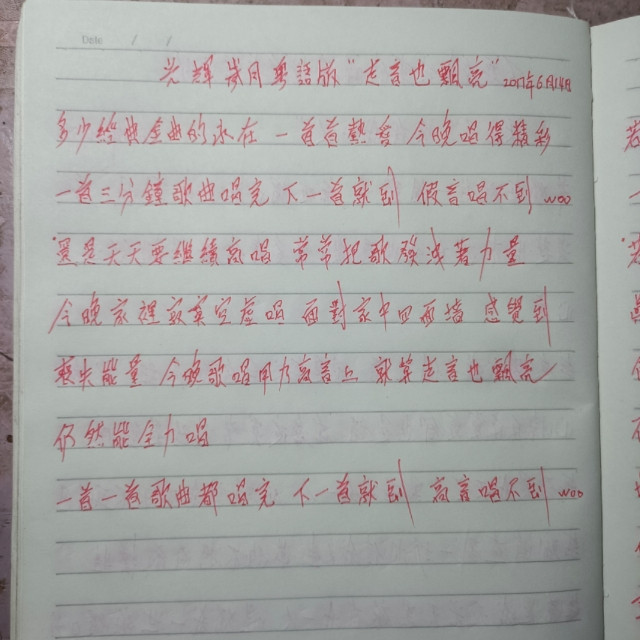 Date / /
光輝歲月粵語版"走音也飄亮" 2017年6月14日
多少經典金曲的永在 一首首熱音 今晚唱得精彩
一首三分鐘歌曲唱完 下一首就到 假音唱不到 woo
還是天天要繼續高唱 常常把歌發洩著力量
今晚家裡寂寞空虛唱 面對家中四面墻 感覺到
喪失能量 今晚歌唱用力高音上 就算走音也飄亮
仍然能全力唱
一首一首歌曲都唱完 下一首就到 高音唱不到 woo